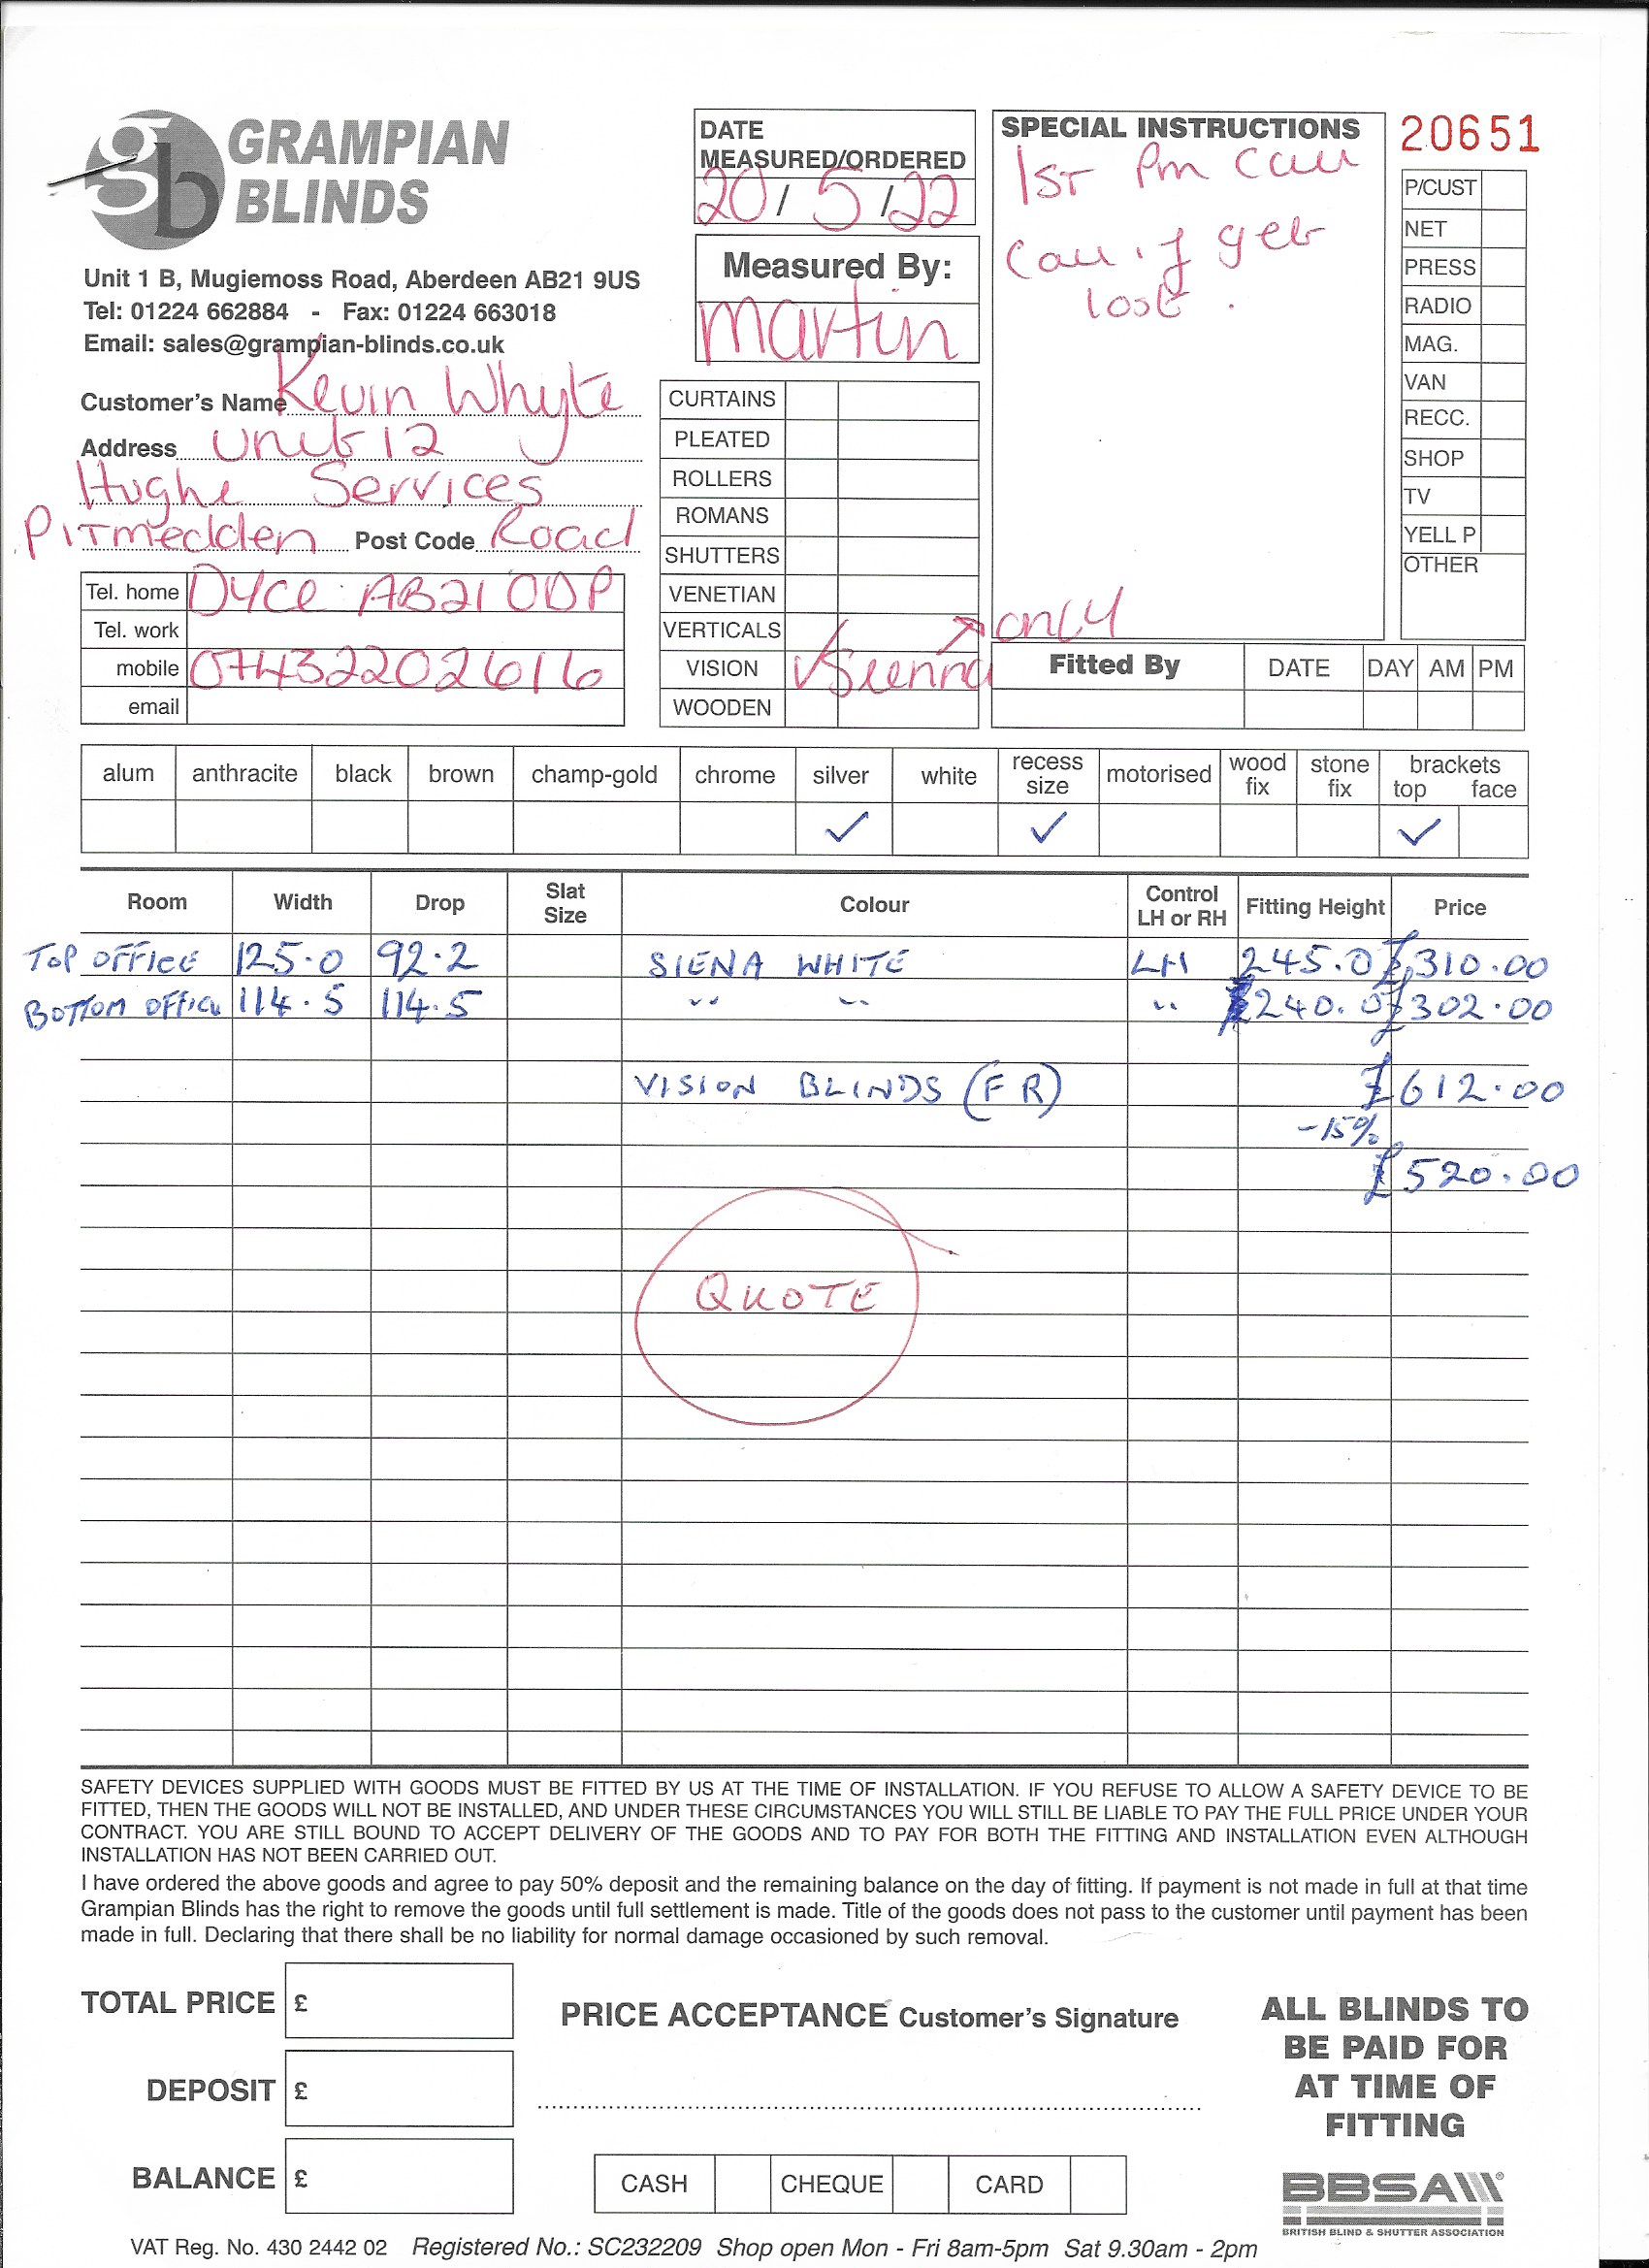 GRAMPIAN
BLINDS
Unit 1 B, Mugiemoss Road, Aberdeen AB21 9US
Tel: 01224 662884 - Fax: 01224 663018
Email: sales@grampian-blinds.co.uk
DATE
MEASURED/ORDERED
20/5/22
Measured By:
Martin
SPECIAL INSTRUCTIONS
1ST Pm Call
Call if get
lost.
only
20651
P/CUST
NET
PRESS
RADIO
MAG.
VAN
RECC.
SHOP
TV
YELL P
OTHER
Customer's Name Kevin Whyte
Address Unit 12
Hughe Services
Pitmedden Post Code Road
Tel. home Dyce AB21 0DP
Tel. work
mobile 07432202616
email
CURTAINS
PLEATED
ROLLERS
ROMANS
SHUTTERS
VENETIAN
VERTICALS
VISION ✓ Sienna
WOODEN
Fitted By DATE DAY AM PM
alum anthracite black brown champ-gold chrome silver white recess size motorised wood fix stone fix brackets top face
✓ ✓ ✓
Room Width Drop Slat Size Colour Control LH or RH Fitting Height Price
TOP OFFICE 125.0 92.2 SIENA WHITE LH 245.0 £310.00
BOTTOM OFFICE 114.5 114.5 " " " 240.0 £302.00
VISION BLINDS (FR) £612.00
-15%
£520.00
QUOTE
SAFETY DEVICES SUPPLIED WITH GOODS MUST BE FITTED BY US AT THE TIME OF INSTALLATION. IF YOU REFUSE TO ALLOW A SAFETY DEVICE TO BE
FITTED, THEN THE GOODS WILL NOT BE INSTALLED, AND UNDER THESE CIRCUMSTANCES YOU WILL STILL BE LIABLE TO PAY THE FULL PRICE UNDER YOUR
CONTRACT. YOU ARE STILL BOUND TO ACCEPT DELIVERY OF THE GOODS AND TO PAY FOR BOTH THE FITTING AND INSTALLATION EVEN ALTHOUGH
INSTALLATION HAS NOT BEEN CARRIED OUT.
I have ordered the above goods and agree to pay 50% deposit and the remaining balance on the day of fitting. If payment is not made in full at that time
Grampian Blinds has the right to remove the goods until full settlement is made. Title of the goods does not pass to the customer until payment has been
made in full. Declaring that there shall be no liability for normal damage occasioned by such removal.
TOTAL PRICE £
DEPOSIT £
BALANCE £
PRICE ACCEPTANCE Customer's Signature
CASH CHEQUE CARD
ALL BLINDS TO
BE PAID FOR
AT TIME OF
FITTING
BBSA
BRITISH BLIND & SHUTTER ASSOCIATION
VAT Reg. No. 430 2442 02 Registered No.: SC232209 Shop open Mon - Fri 8am-5pm Sat 9.30am - 2pm